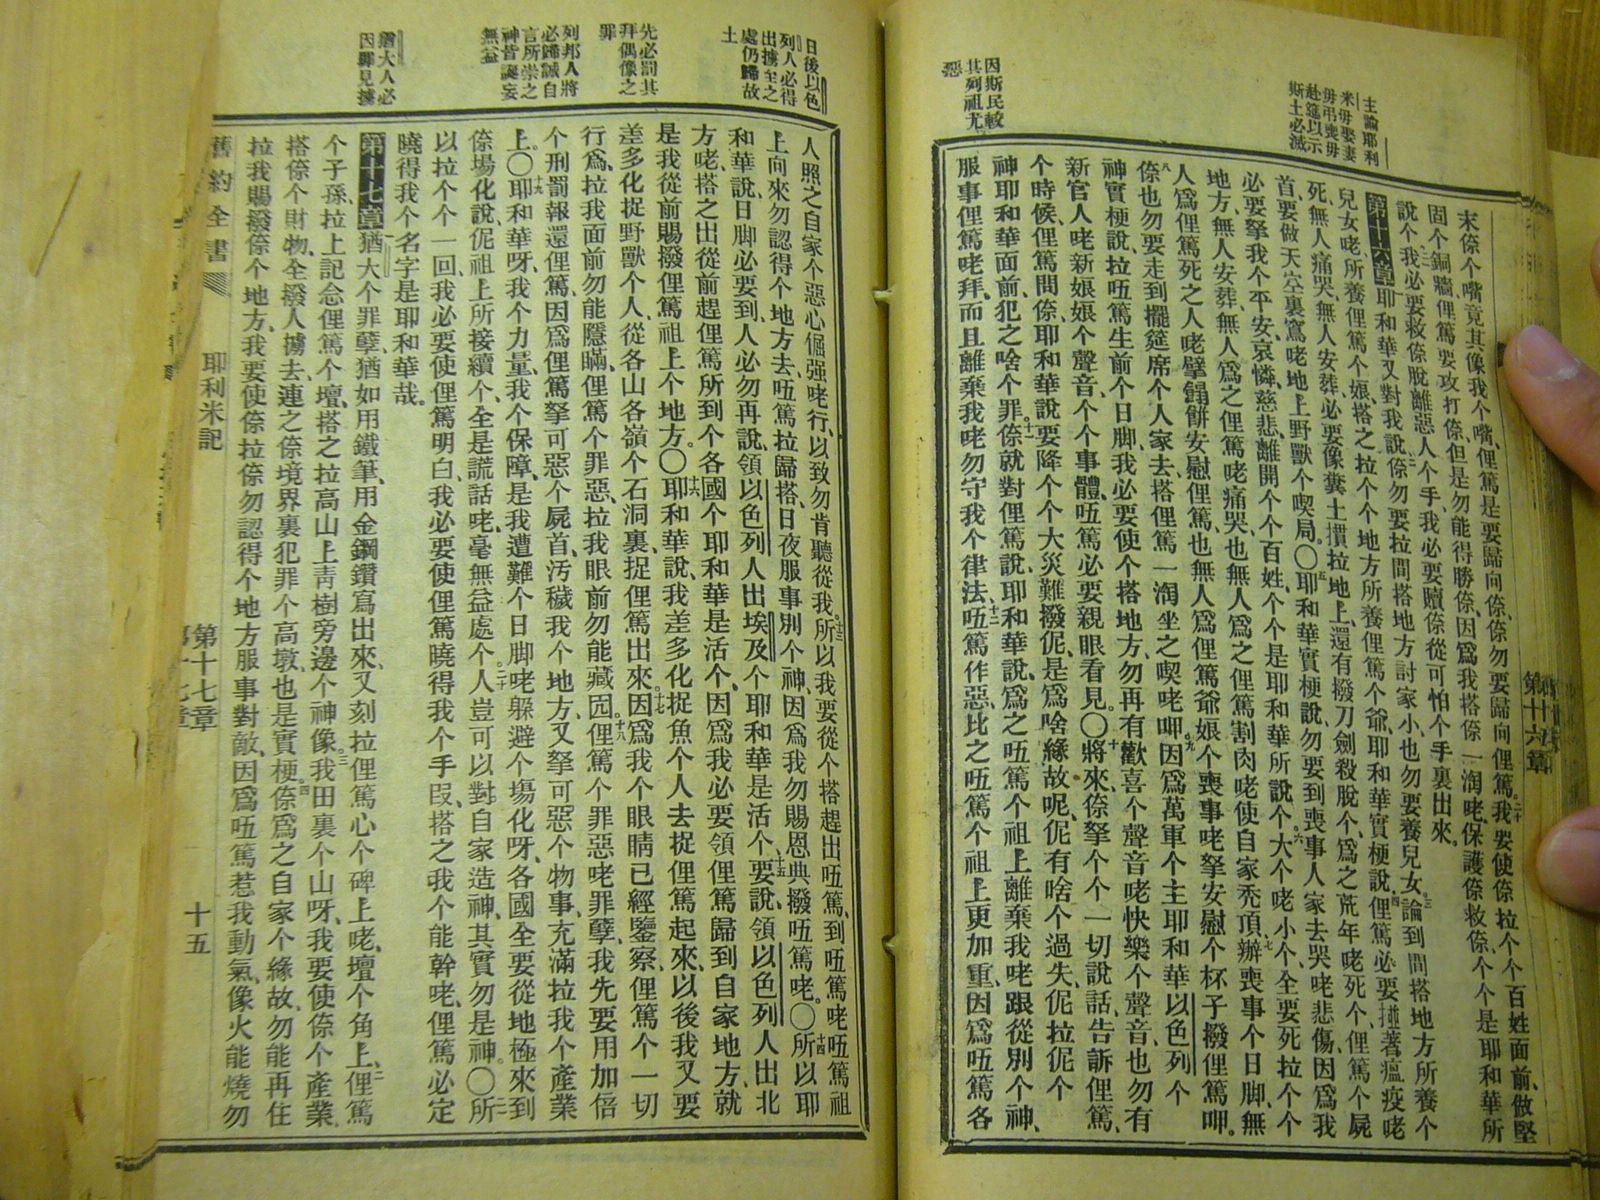 主諭耶利
米毋娶妻
毋弔喪毋
赴筵以示
斯土必滅
因斯民較
其列祖尤
惡
第十六章
末倷个嘴竟其像我个嘴、俚篤是要歸向倷、倷勿要歸向俚篤。二十我要使倷拉个个百姓面前、做堅
固个銅牆、俚篤要攻打倷、但是勿能得勝倷、因爲我搭倷一淘咾、保護倷救倷、个个是耶和華所
說个、我必要救倷脫離惡人个手、我必要贖倷從可怕个手裏出來。
第十六章耶和華又對我說、二倷勿要拉間搭地方討家小、也勿要養兒女。三論到間搭地方所養个
兒女咾、所養俚篤个娘、搭之拉个个地方所養俚篤个爺、耶和華實梗說、四俚篤必要撞著瘟疫咾
死、無人痛哭、無人安葬、必要像糞土摜拉地上、還有撥刀劍殺脫个、爲之荒年咾死个、俚篤个屍
首、要做天空裏窵咾地上野獸个喫局。〇五耶和華實梗說、勿要到喪事人家去哭咾悲傷、因爲我
必要拏我个平安、哀憐、慈悲、離開个个百姓、个个是耶和華所說个。六大个咾小个、全要死拉个个
地方、無人安葬、無人爲之俚篤咾痛哭、也無人爲之俚篤割肉咾使自家禿頂、七辦喪事个日脚、無
人爲俚篤死之人咾擘開餅安慰俚篤、也無人爲俚篤爺娘个喪事咾拏安慰个杯子撥俚篤呷。
八倷也勿要走到擺筵席个人家去、搭俚篤一淘坐之喫咾呷。九因爲萬軍个主耶和華以色列个
神實梗說、拉㕶篤生前个日脚、我必要使个搭地方、勿再有歡喜个聲音咾快樂个聲音、也勿有
新官人咾新娘娘个聲音、个个事體、㕶篤必要親眼看見。〇十將來、倷拏个个一切說話、告訴俚篤、
个時候、俚篤問倷、耶和華說要降个个大災難撥伲、是爲啥緣故呢、伲有啥个過失、伲拉伲个
神耶和華面前、犯之啥个罪。十一倷就對俚篤說、耶和華說、爲之㕶篤个祖上離棄我咾、跟從別个神、
服事俚篤咾拜、而且離棄我咾勿守我个律法、十二㕶篤作惡、比之㕶篤个祖上更加重、因爲㕶篤各
第十六章
日後以色
列人必得
出擄至之
處仍歸故
土
先必罰其
拜偶像之
罪
列邦人將
必歸誠自
言所崇之
神皆誕妄
無益
猶大人必
因罪見擄
人照之自家个惡心倔强咾行、以致勿肯聽從我、十三所以我要從个搭趕出㕶篤、到㕶篤咾㕶篤祖
上向來勿認得个地方去、㕶篤拉歸搭、日夜服事別个神、因爲我勿賜恩典撥㕶篤咾。〇十四所以耶
和華說、日脚必要到、人必勿再說、領以色列人出埃及个耶和華是活个、十五要說、領以色列人出北
方咾、搭之出從前趕俚篤所到个各國个耶和華是活个、因爲我必要領俚篤歸到自家地方、就
是我從前賜撥俚篤祖上个地方。〇十六耶和華說、我差多化捉魚个人去捉俚篤起來、以後我又要
差多化捉野獸个人、從各山各嶺个石洞裏、捉俚篤出來。十七因爲我个眼睛已經鑒察俚篤个一切
行爲、拉我面前勿能隱瞞、俚篤个罪惡、拉我眼前勿能藏囥。十八俚篤个罪惡咾罪孽、我先要用加倍
个刑罰報還俚篤、因爲俚篤拏可惡个屍首、汚穢我个地方、又拏可惡个物事、充滿拉我个產業
上。〇十九耶和華呀、我个力量、我个保障、是我遭難个日脚咾躱避个場化呀、各國全要從地極來到
倷場化說、伲祖上所接續个、全是謊話咾、毫無益處个、二十人豈可以對自家造神、其實勿是神。〇二一所
以拉个个一回、我必要使俚篤明白、我必要使俚篤曉得我个手段、搭之我个能幹咾、俚篤必定
曉得我个名字是耶和華哉。
第十七章猶大个罪孽、猶如用鐵筆、用金鋼鑽寫出來、又刻拉俚篤心个碑上咾、壇个角上、二俚篤
个子孫、拉上記念俚篤个壇、搭之拉高山上靑樹旁邊个神像。三我田裏个山呀、我要使倷个產業、
搭倷个財物、全撥人擄去、連之倷境界裏犯罪个高墩、也是實梗。四倷爲之自家个緣故、勿能再住
拉我賜撥倷个地方、我要使倷拉倷勿認得个地方服事對敵、因爲㕶篤惹我動氣、像火能燒勿
舊約全書 耶利米記 第十七章 十五